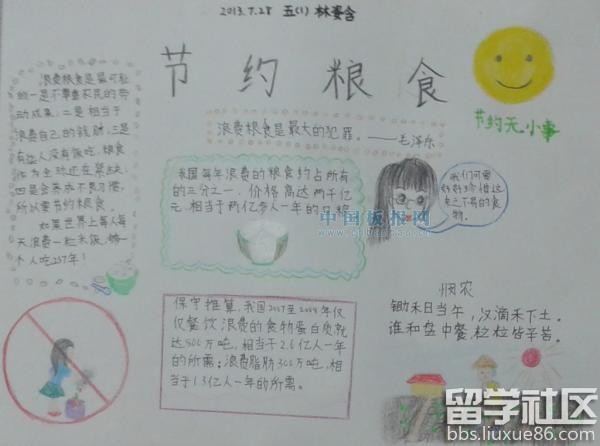 2013.7.28 五(1) 林安含
节约粮食
节约无小事
浪费粮食是最可耻
的一是不尊重农民的劳
动成果;二是相当于
浪费自己的钱财,三是
有些人没有饭吃,粮食
作为全球还在紧缺;
四是会养成不良习惯,
所以要节约粮食。
如果世界上每人每
天浪费一粒米饭,够一
个人吃257年!
浪费粮食是最大的犯罪。——毛泽东
我国每年浪费的粮食约占所有
的三分之一,价格高达两千亿
元,相当于两亿多人一年的口粮
我们可要
好好珍惜这
来之不易的食
物。
中国板报网
保守推算,我国2007至2008年仅
仅餐饮浪费的食物蛋白质就
达800万吨,相当于2.6亿人一年
的所需;浪费脂肪300万吨,相
当于1.3亿人一年的所需。
悯农
锄禾日当午,汉滴禾下土。
谁和盘中餐,粒粒皆辛苦。
留学社区
bbs.liuxue86.com